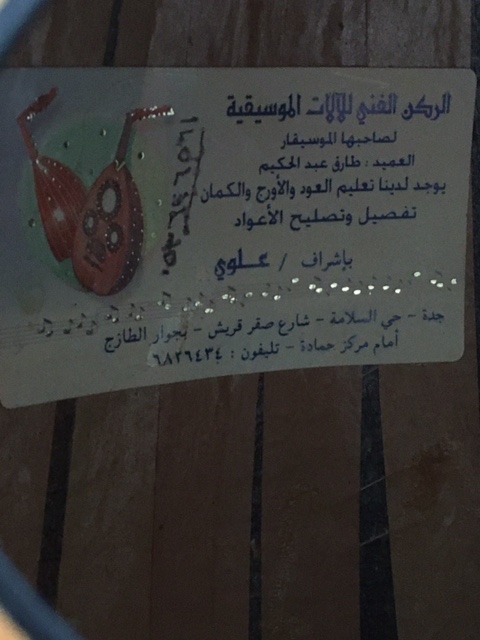 الركن الفني للآلات الموسيقية
لصاحبها الموسيقار
العميد : طارق عبد الحكيم
يوجد لدينا تعليم العود والأورج والكمان
تفصيل وتصليح الأعواد
بإشراف / علوي
جدة - حي السلامة - شارع صقر قريش - بجوار الطازج
أمام مركز حمادة - تليفون : ٦٨٢٦٤٣٤